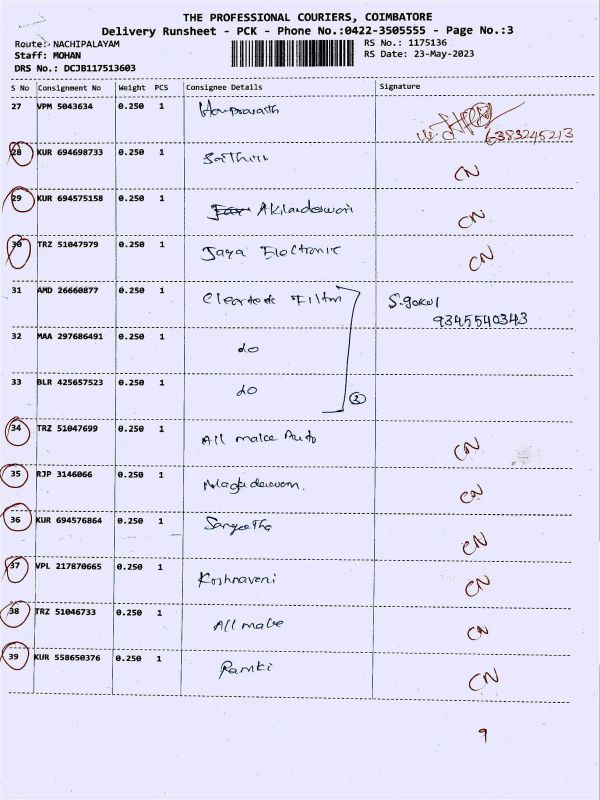 THE PROFESSIONAL COURIERS, COIMBATORE
Delivery Runsheet - PCK - Phone No.:0422-3505555 - Page No.:3
Route:- NACHIPALAYAM
RS No.: 1175136
Staff: MOHAN
RS Date: 23-May-2023
DRS No.: DCJB117513603
S No Consignment No Weight PCS Consignee Details Signature
27 VPM 5043634 0.250 1
6383245213
28 KUR 694698733 0.250 1 CN
29 KUR 694575158 0.250 1 Akilandeswari CN
30 TRZ 51047979 0.250 1 Jaya Electronic CN
31 AMD 26660877 0.250 1 S.gokul
9345540343
32 MAA 297686491 0.250 1 do
33 BLR 425657523 0.250 1 do
34 TRZ 51047699 0.250 1 All make Auto CN
35 RJP 3146066 0.250 1 CN
36 KUR 694576864 0.250 1 Sangeetha CN
37 VPL 217870665 0.250 1 CN
38 TRZ 51046733 0.250 1 All make CN
39 KUR 558650376 0.250 1 Ramki CN
9